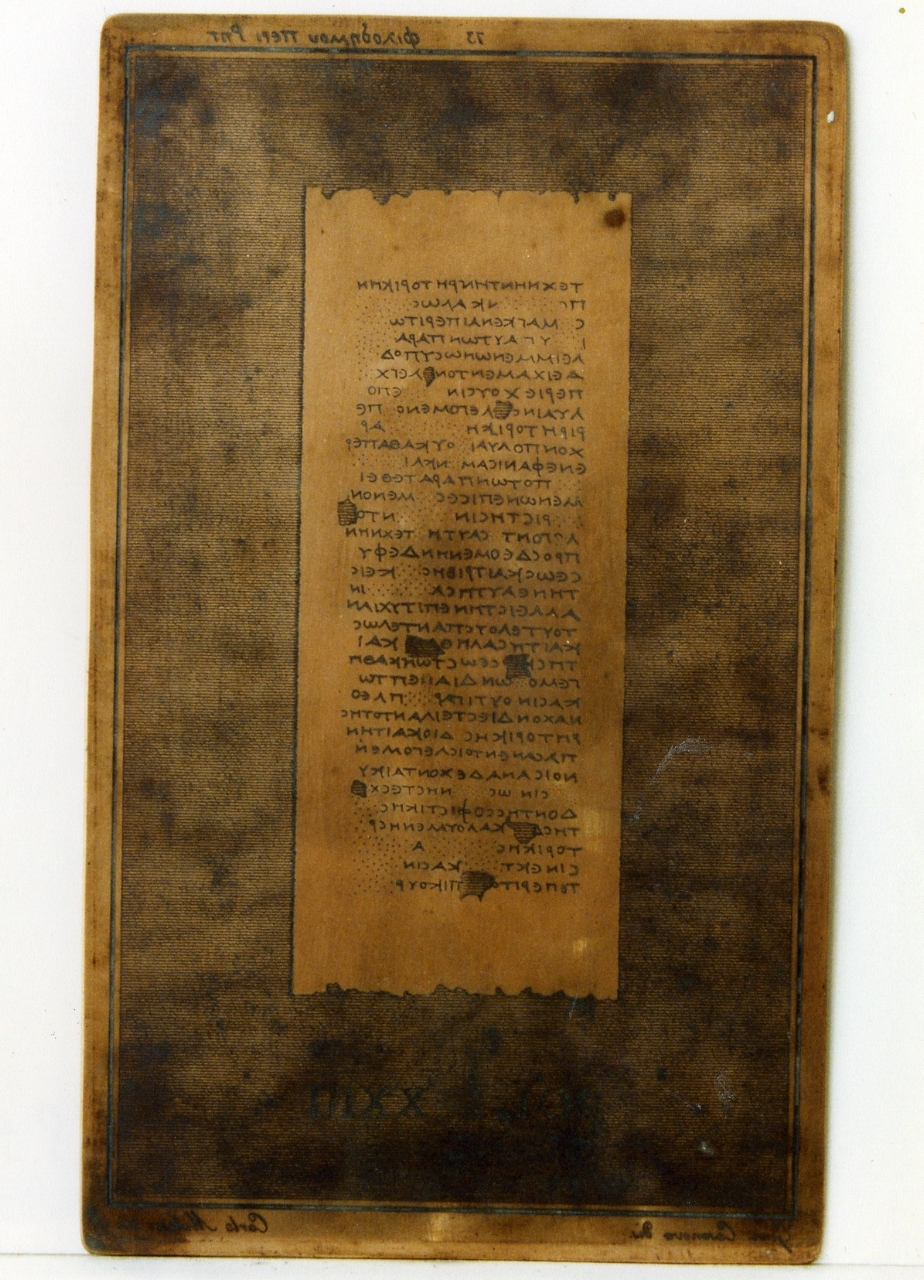 73 φιλοδημου Περι Ρητ
ΤΕΧΝΗΝΤΗΝΡΗΤΟΡΙΚΗΝ
Π Ν ΚΑΛΩC
C ΜΑΓΚΕΝΑΙΠΕΡΙΤΩ
Ι ΥΓΑΥΤΩΝΠΑΡΑ
ΛΕΙΜΜΕΝΩΝΩCΥΠΟΔ
ΔΕΙΧΑΜΕΝΤΟΝ ΛΕΓΧ
ΠΕΡΙΕΧΟΥCΙΝ ΕΠΟ
ΛΥΑΙΝC ΛΕΓΟΜΕΝΟC ΠΕ
ΡΙΡΗΤΟΡΙΚΗ ΑΡ
ΧΟΝΠΟΛΥΑΙ ΟΥΚΑΘΑΠΕΡ
ΕΝΕΦΑΝΙCΑΜ ΝΚΑΙ
ΠΟΤΩΝΠΑΡΑΤΕΘΕΙ
ΜΕΝΩΝΕΠΙCΕC ΜΕΝΟΝ
ΡΙCΤΗCΙΝ ΝΤΟ
ΛΕΓΟΝΤ CΑΥΤΗ ΤΕΧΝΗΝ
ΠΡΟCΔΕΟΜΕΝΗΝΔΕΦΥ
CΕΩCΚΑΙΤΡΙΒΗC ΚΕΙC
ΤΗΝΕΑΥΤΗCΚ ΙΝ
ΑΛΛΕΙCΤΗΝΕΠΙΤΥΧΙΑΝ
ΤΟΥΤΕΛΟΥCΠΑΝΤΕΛΩC
ΚΑΙΤΗCΑΛΗΘ ΚΑΙ
ΤΗCΚ CΕΩCΤΩΝΚΑΘΗ
ΓΕΜΟ ΩΝΔΙΑΠΕΠΤΩ
ΚΑCΙΝ ΟΥΤΙΓΑΡ ΠΛΕΟ
ΝΑΧΟΝΔΙΕCΤΕΙΛΑΝΤΟΤΗC
ΡΗΤΟΡΙΚΗC ΔΙΟΚΑΙΤΗΝ
ΠΛΑΝΗΝΕΝΤΟΙCΛΕΓΟΜΕΝ
ΝΟΙCΑΝΑΔΕΧΟΝΤΑΙΚΥ
CΙΝ ΩC ΝΗCΤΕCΧ
ΔΟΝΤΗCCΟΦΙCΤΙΚΗC
ΤΗCΔ ΚΑΛΟΥΜΕΝΗCΡ
ΤΟΡΙΚΗC Α
CΙΝΕΚΤ ΚΑCΙΝ
ΤΩΠΕΡΙΤΟ ΠΙΚΟΥΡ
Casanova dis. Carlo